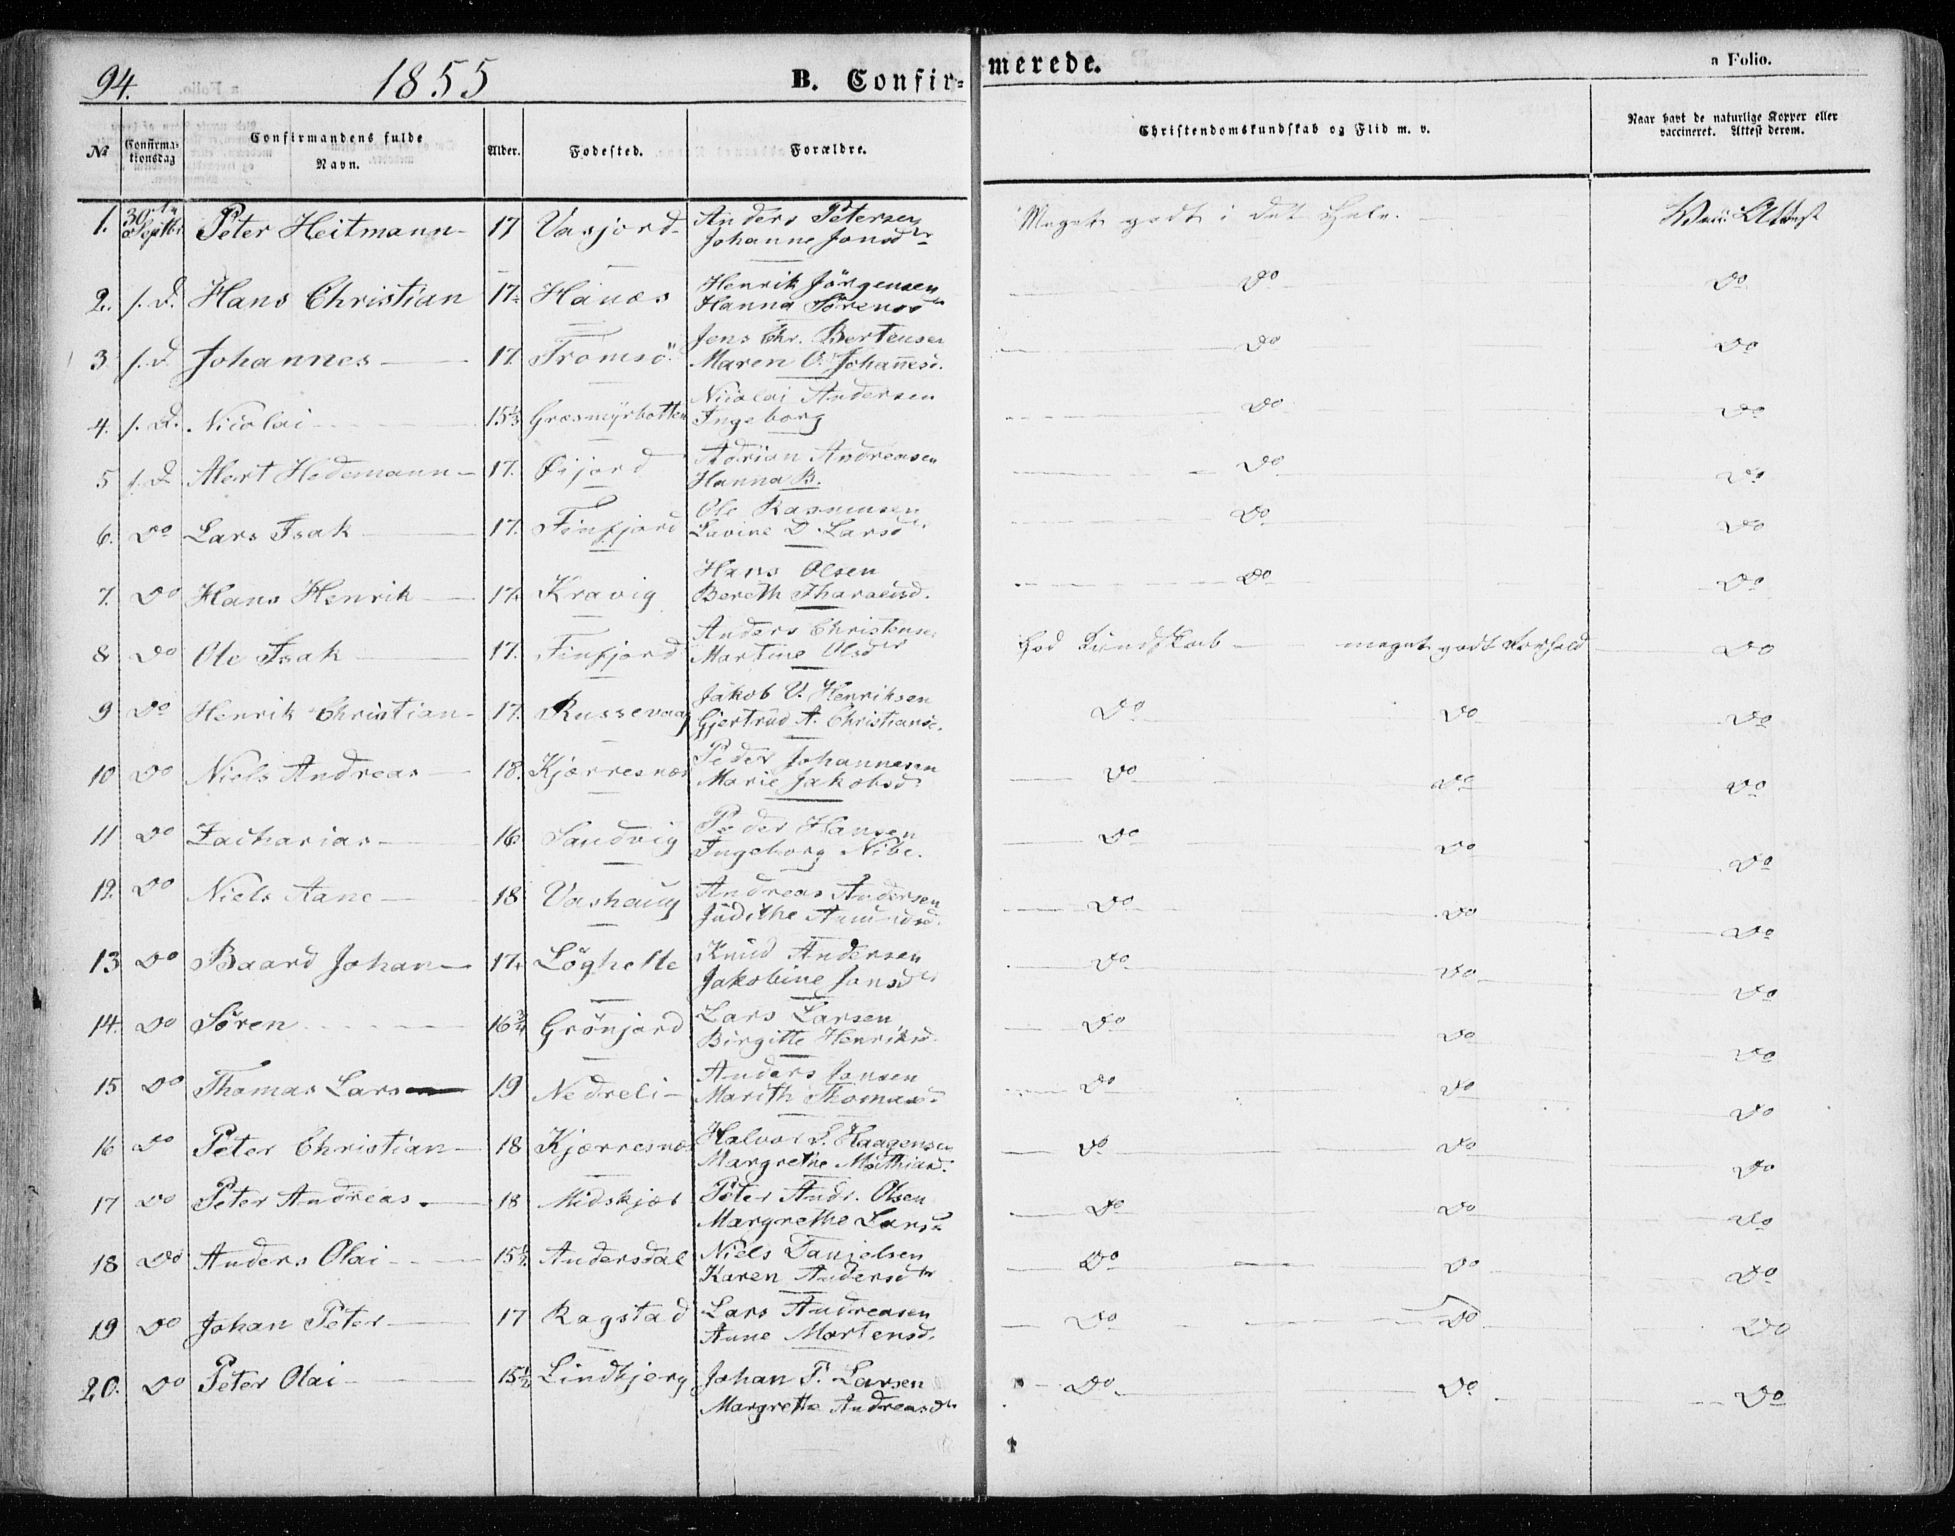 94. 1855 B. Confir= merede. a Folio.
No Confirmationsdag Confirmandens fulde Navn. Alder. Fødested. Forældre. Christendomskundskab og Flid m. v. Naar havt de naturlige Kopper eller vaccineret. Attest derom.
1. 30 Septbr Peter Heitmann 17 Vasjord Anders Petersen Meget godt i det Hele. Vacc: Attest
Johanne Jonsdtr
2. s. D. Hans Christian 17. Hanæs Henrik Jörgensen Do Do
Hanna Sörensd
3 s. D. Johannes 17. Tromsö Jens Chr. Bertensen Do Do
Maren O. Johannesd.
4. s. D. Nicolai 15½ Græsmyrbotten Nicolai Andersen Do Do
Ingeborg
5 s. D. Alert Hedemann 17. Öijord Adrian Andreasen Do Do
Hanna B.
6. Do Lars Isak 17. Finfjord Ole Rasmusen Do Do
Lavine D Larsd
7. Do Hans Henrik 17. Kravig Hans Olsen Do Do
Bereth Tharaldsd.
8 Do Ole Isak 17. Finfjord Anders Christense God Kundskab meget godt Forhold Do
Martine Olsdtr
9 Do Henrik Christian 17. Russevaag Jakob U. Henriksen Do Do Do
Gjertrud A. Christiansd.
10 Do Niels Andreas 18. Kjærresnæs Peder Johannesen Do Do Do
Marie Jakobsd
11 Do Zacharias 16 Sandvig Peder Hansen Do Do Do
Ingeborg Nibe.
12. Do Niels Aane 18 Vashaug Andreas Andersen Do Do Do
Judithe Amundsd.
13 Do Baard Johan 17. Löghelle Knud Andersen Do Do Do
Jakobine Jonsd
14. Do Sören 16¾ Grönjord Lars Larsen Do Do Do
Birgitte Henriksd
15 Do Thomas Lars 19 Nedreli Anders Jonsen Do Do Do
Marith Thomasd.
16 Do Peter Christian 18 Kjærresnæs Halvor L. Haagensen Do Do Do
Margrethe Mathiasd.
17 Do Peter Andreas 18 Midskjær Peter Andr. Olsen Do Do Do
Margrethe Larsd
18 Do Anders Olai 15½ Andersdal Niels Danielsen Do Do Do
Karen Andersdtr
19 Do Johan Peter 17 Ragstad Lars Andreasen Do Do Do
Anne Mortensd.
20. Do Peter Olai 15½ Lindbjerg Johan P. Larsen Do Do Do
Margrethe Andreasdtr